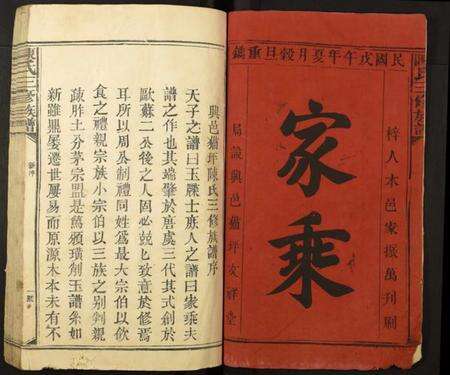 民國戊午年夏月穀旦重鐫
梓人木邑家振萬刊刷
家乘
局設興邑貓坪友祥堂
陳氏三修族譜
興邑貓坪陳氏三修族譜序
天子之譜曰玉牒士族人之譜曰家乘夫
譜之作也其端肇於唐虞三代其式創於
歐蘇二公後之人罔必兢匕致意於修焉
耳所以周公制禮同姓為最大宗伯以飲
食之禮親宗族小宗伯以三族之別
親
疏胙土分茅宗盟是篤頒璜剖玉譜系如
新雖屢變遷世屢易而原源木本未有不
陳氏三修族譜
新序